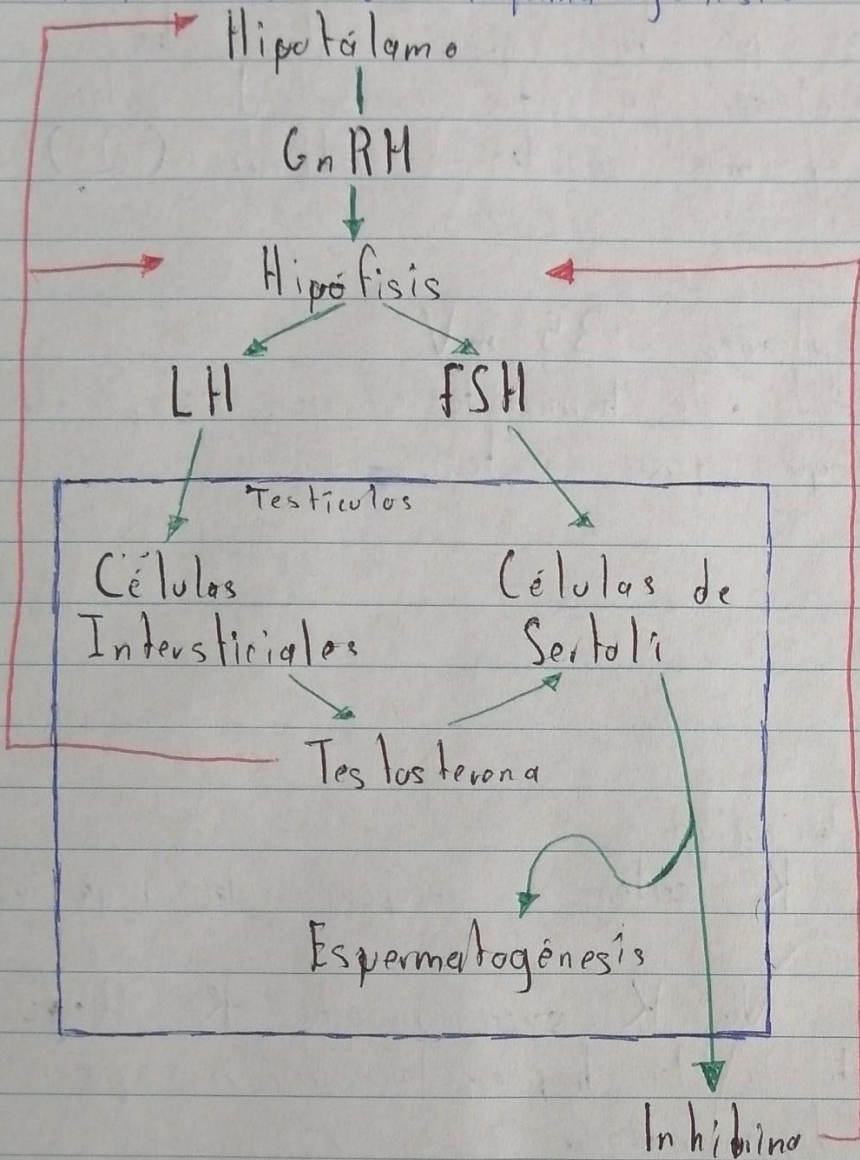 Hipotálamo
GnRH
Hipófisis
LH FSH
Testículos
Células Células de
Intersticiales Sertoli
Testosterona
Espermatogénesis
Inhibina